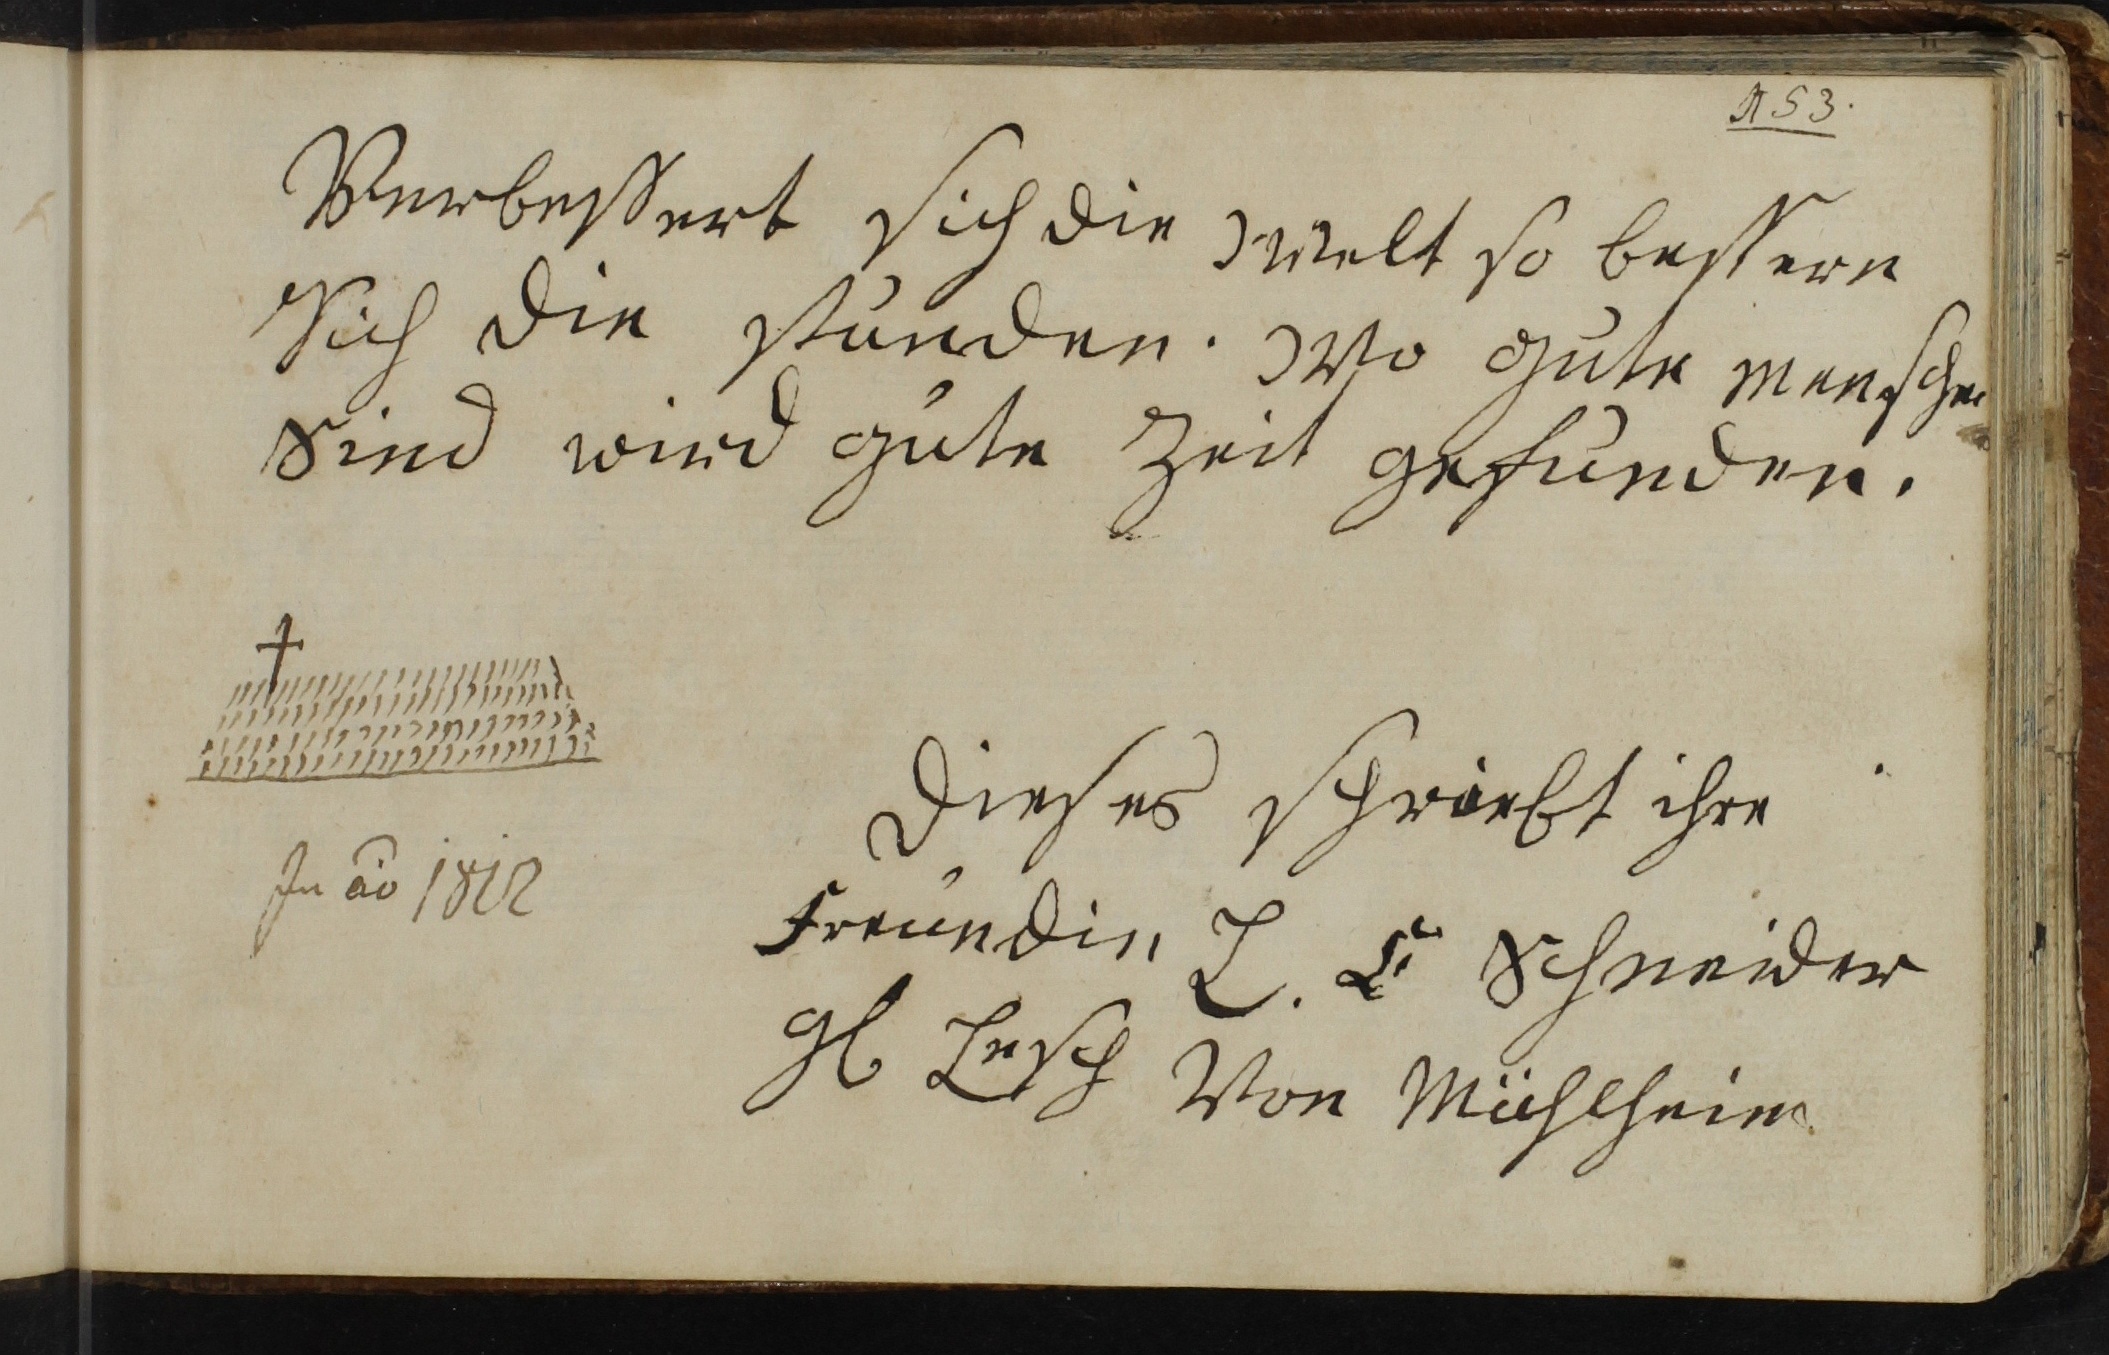 153.
Verbessert sich die Welt so bessern
Sich die stunden. Wo gute menschen
Sind wird gute Zeit gefunden.
Dieses schriebt ihre
Freundin L. C Schneider
gb Lesch Von Mühlheim
In ao 1812